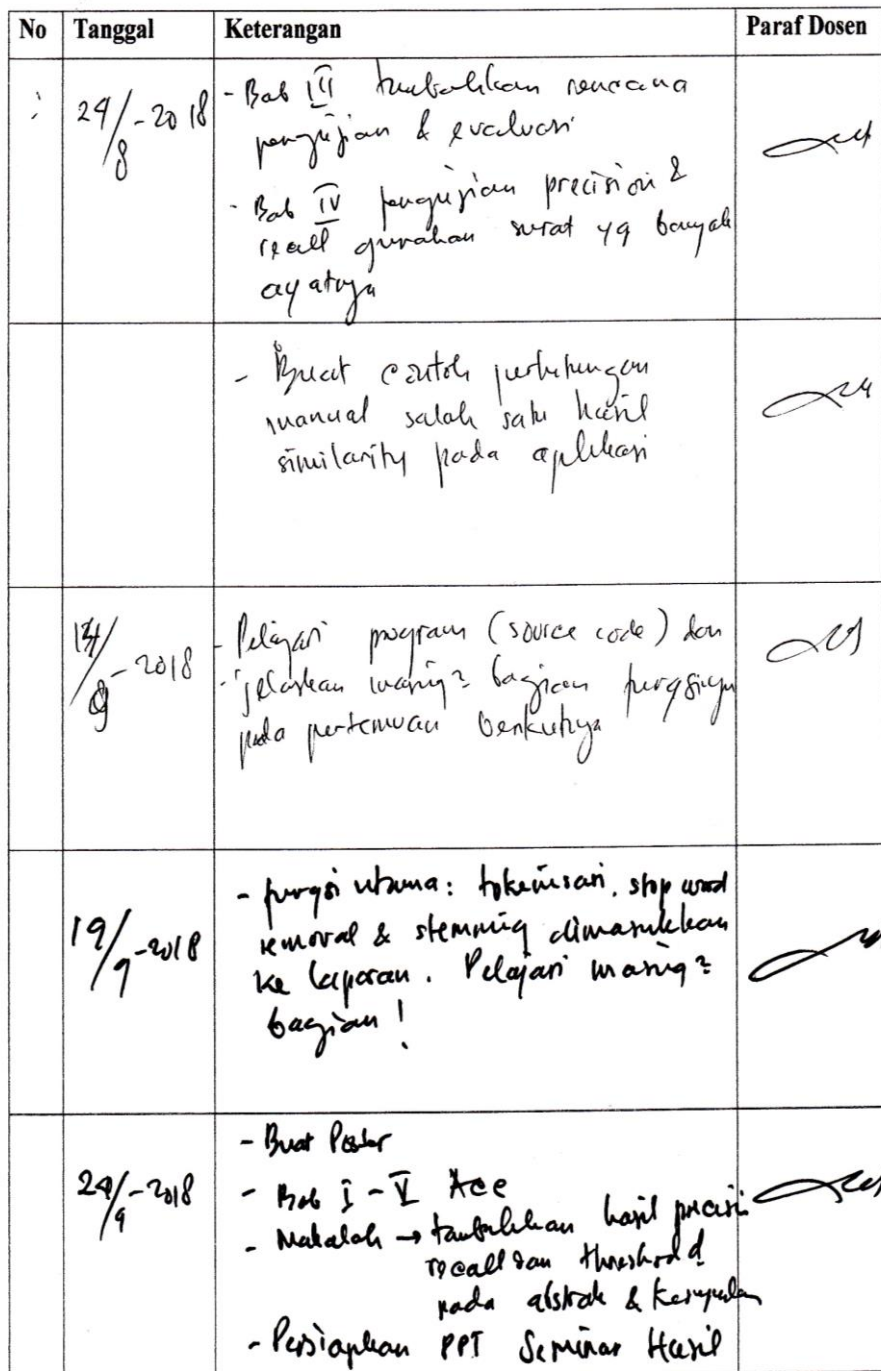 No Tanggal Keterangan Paraf Dosen
24/8-2018
- Bab III tambahkan rencana
pengujian & evaluasi
- Bab IV pengujian precision &
recall gunakan surat yg banyak
ayatnya
- Buat contoh perhitungan
manual salah satu hasil
similarity pada aplikasi
-2018
- Pelajari program (source code) dan
- jelaskan masing2 bagian fungsinya
pada pertemuan berikutnya
19/9-2018
- fungsi utama: tokenisasi, stop word
removal & stemming dimasukkan
ke laporan. Pelajari masing2
bagian!
-2018
- Buat Poster
- Bab I - V Acc
- Makalah → tambahkan hasil precisi
recall dan threshold
pada abstrak & kesimpulan
- Persiapkan PPT Seminar Hasil